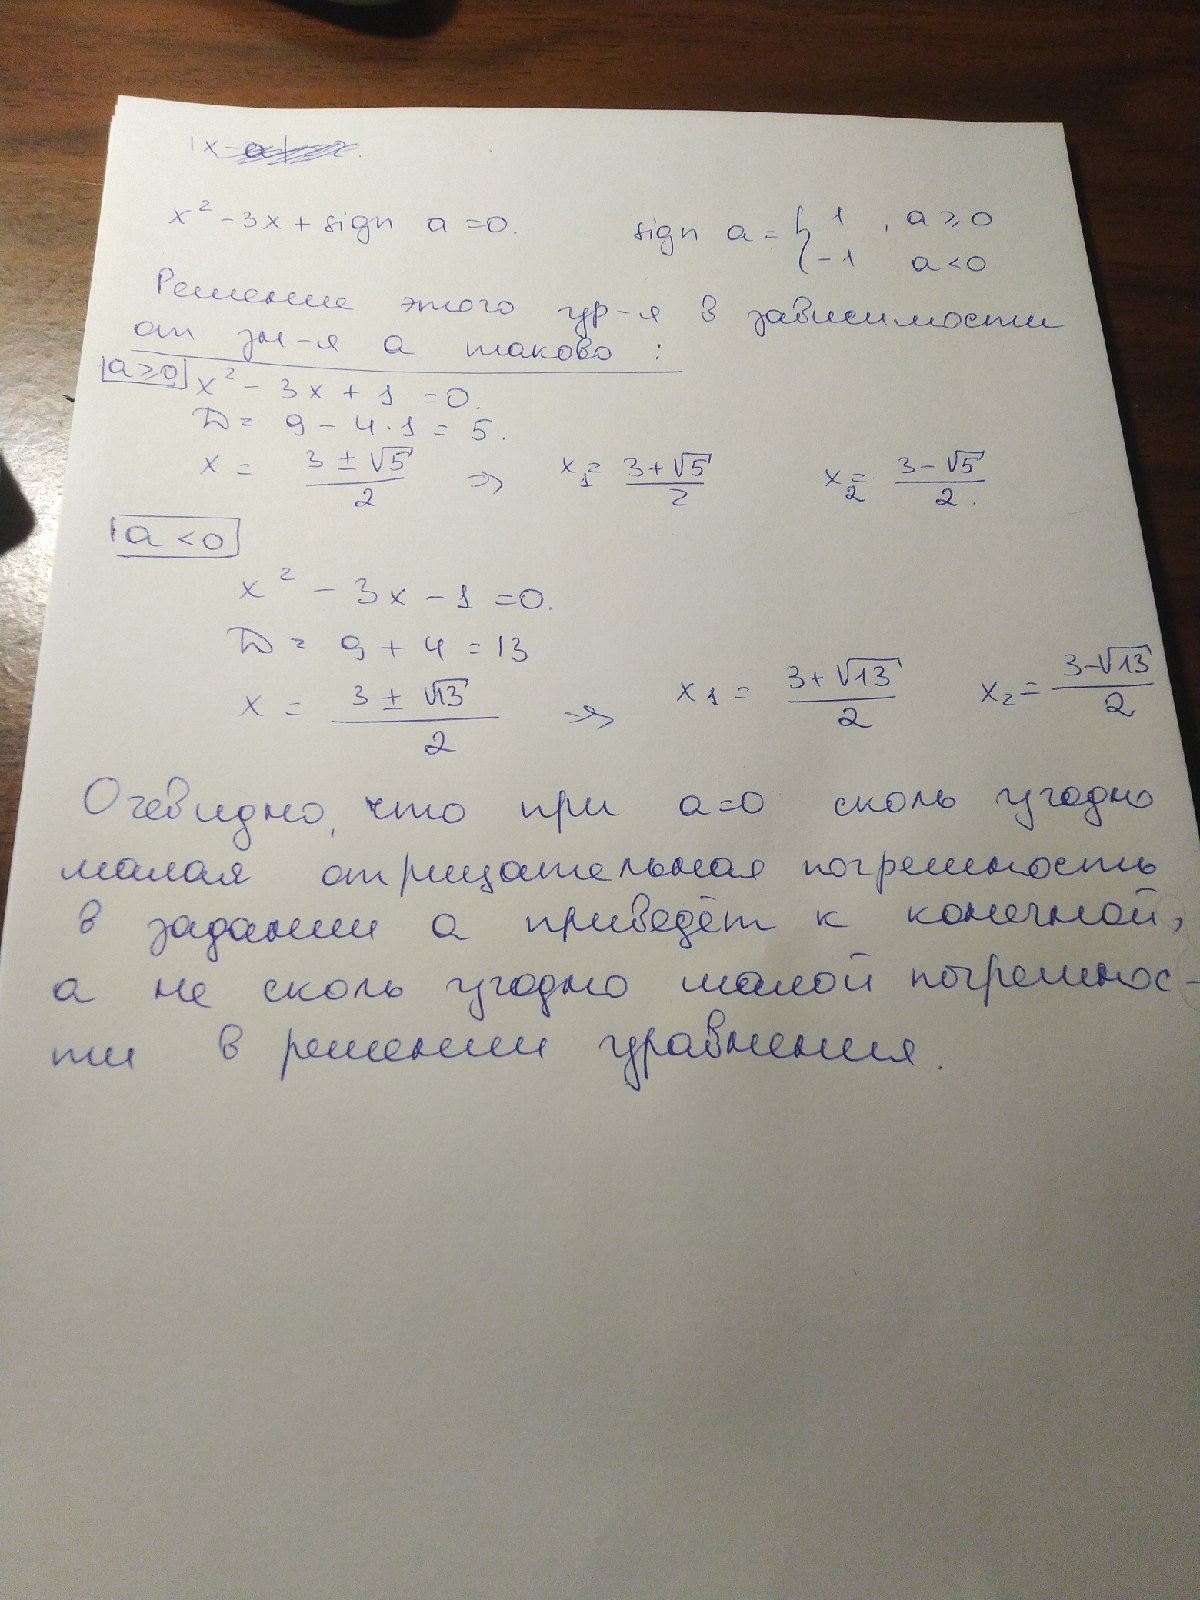 |x-a|
x² - 3x + sign a = 0. sign a = { 1 , a ≥ 0
{ -1 a < 0
Решение этого ур-я в зависимости
от зн-я a таково:
a ≥ 0 x² - 3x + 1 = 0.
D = 9 - 4·1 = 5.
x = (3 ± √5)/2 => x₁ = (3 + √5)/2 x₂ = (3 - √5)/2.
a < 0
x² - 3x - 1 = 0.
D = 9 + 4 = 13
x = (3 ± √13)/2 => x₁ = (3 + √13)/2 x₂ = (3 - √13)/2
Очевидно, что при a=0 сколь угодно
малая отрицательная погрешность
в задании a приведёт к конечной,
а не сколь угодно малой погрешнос-
ти в решении уравнения.